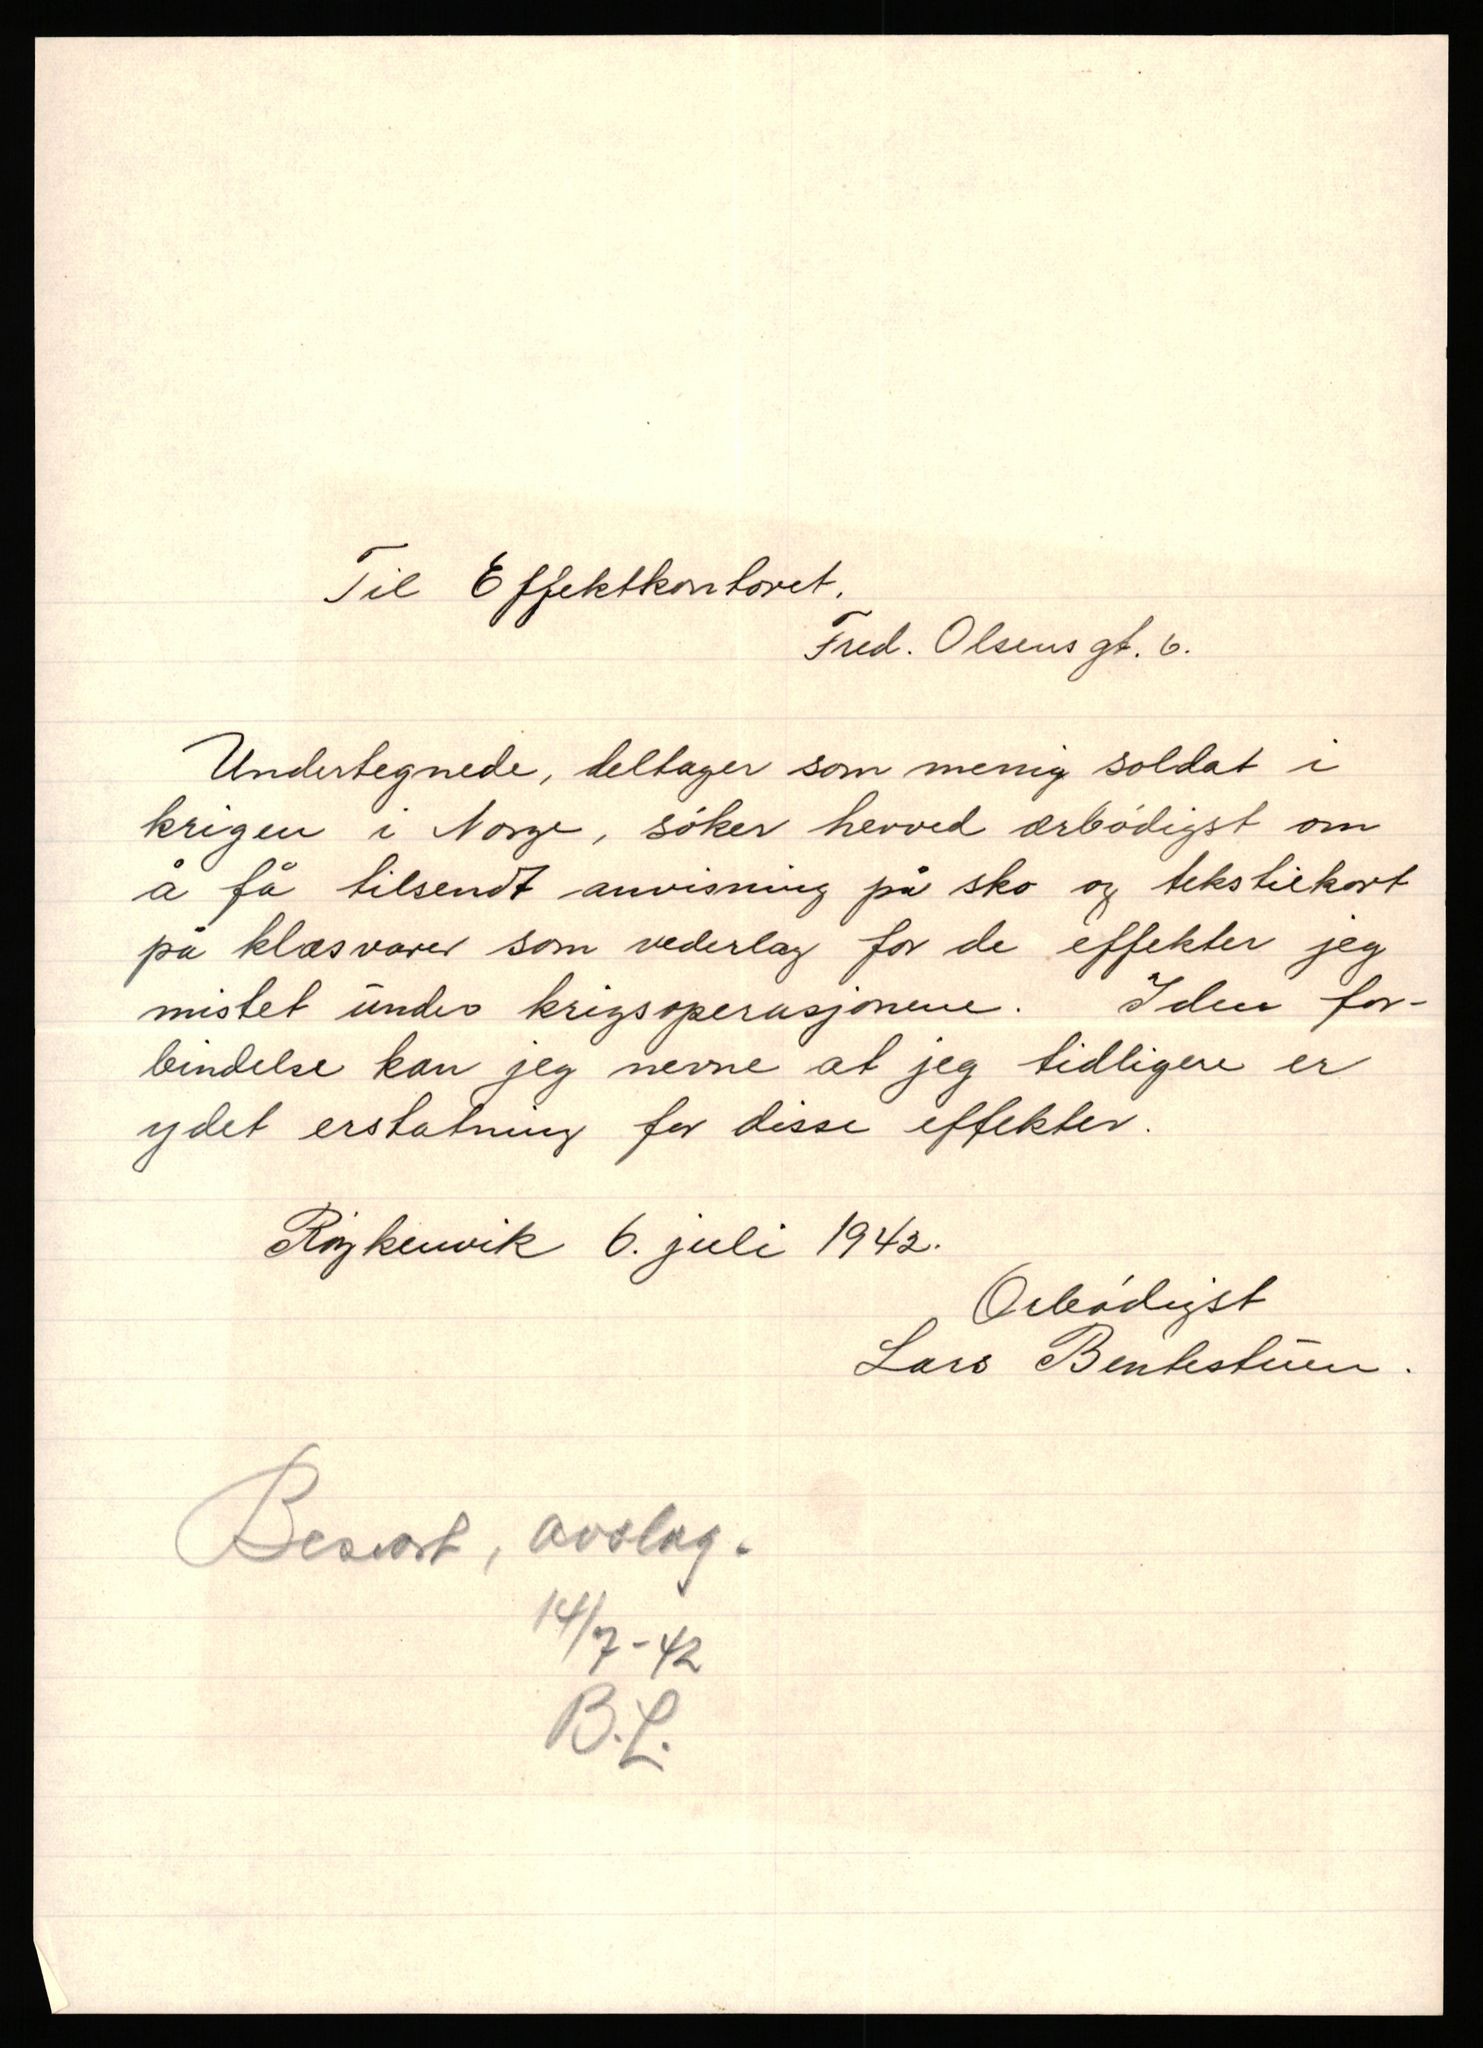 Til Effektkontoret.
Fred. Olsens gt. 6.
Undertegnede, deltager som menig soldat i
krigen i Norge, søker herved ærbødigst om
å få tilsendt anvisning på sko og tekstilkort
på klæsvarer som vederlag for de effekter jeg
mistet under krigsoperasjonene. I den for-
bindelse kan jeg nevne at jeg tidligere er
ydet erstatning for disse effekter.
Røykenvik 6. juli 1942.
Ærbødigst
Lars Bentestuen.
Besvart, avslag.
14/7-42
B.L.